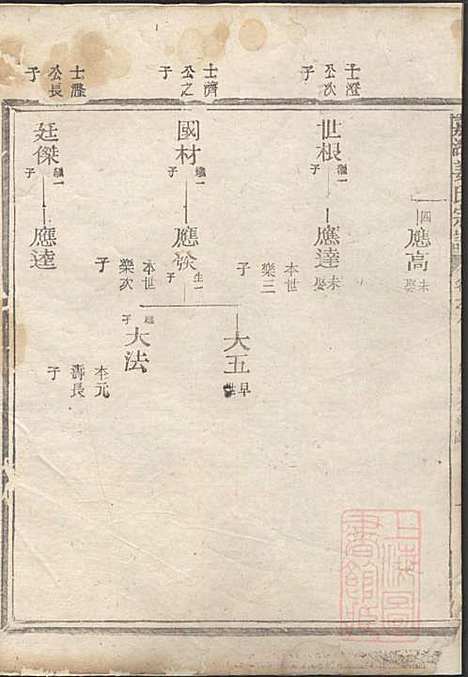 四
應高
未娶
士澄
公次
子
世根
繼一
子
應達
未娶
本世
樂三
子
士濟
公之
子
國材
繼一
子
應炎
生一
子
本世
樂次
子
大五
早
大法
繼
子
本元
壽長
子
士澄
公長
子
廷傑
繼一
子
應達
上海圖
書館藏